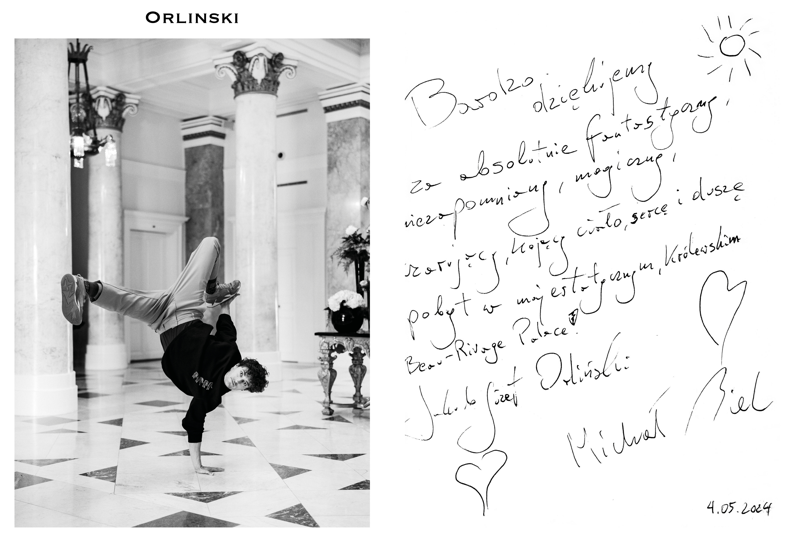 ORLINSKI
Bardzo dziękujemy
za absolutnie fantastyczny,
niezapomniany, magiczny,
czarujący, kojący ciało, serce i duszę
pobyt w majestatycznym, Królewskim
Beau-Rivage Palace!
Jakub Józef Orliński
Michał Biel
4.05.2024